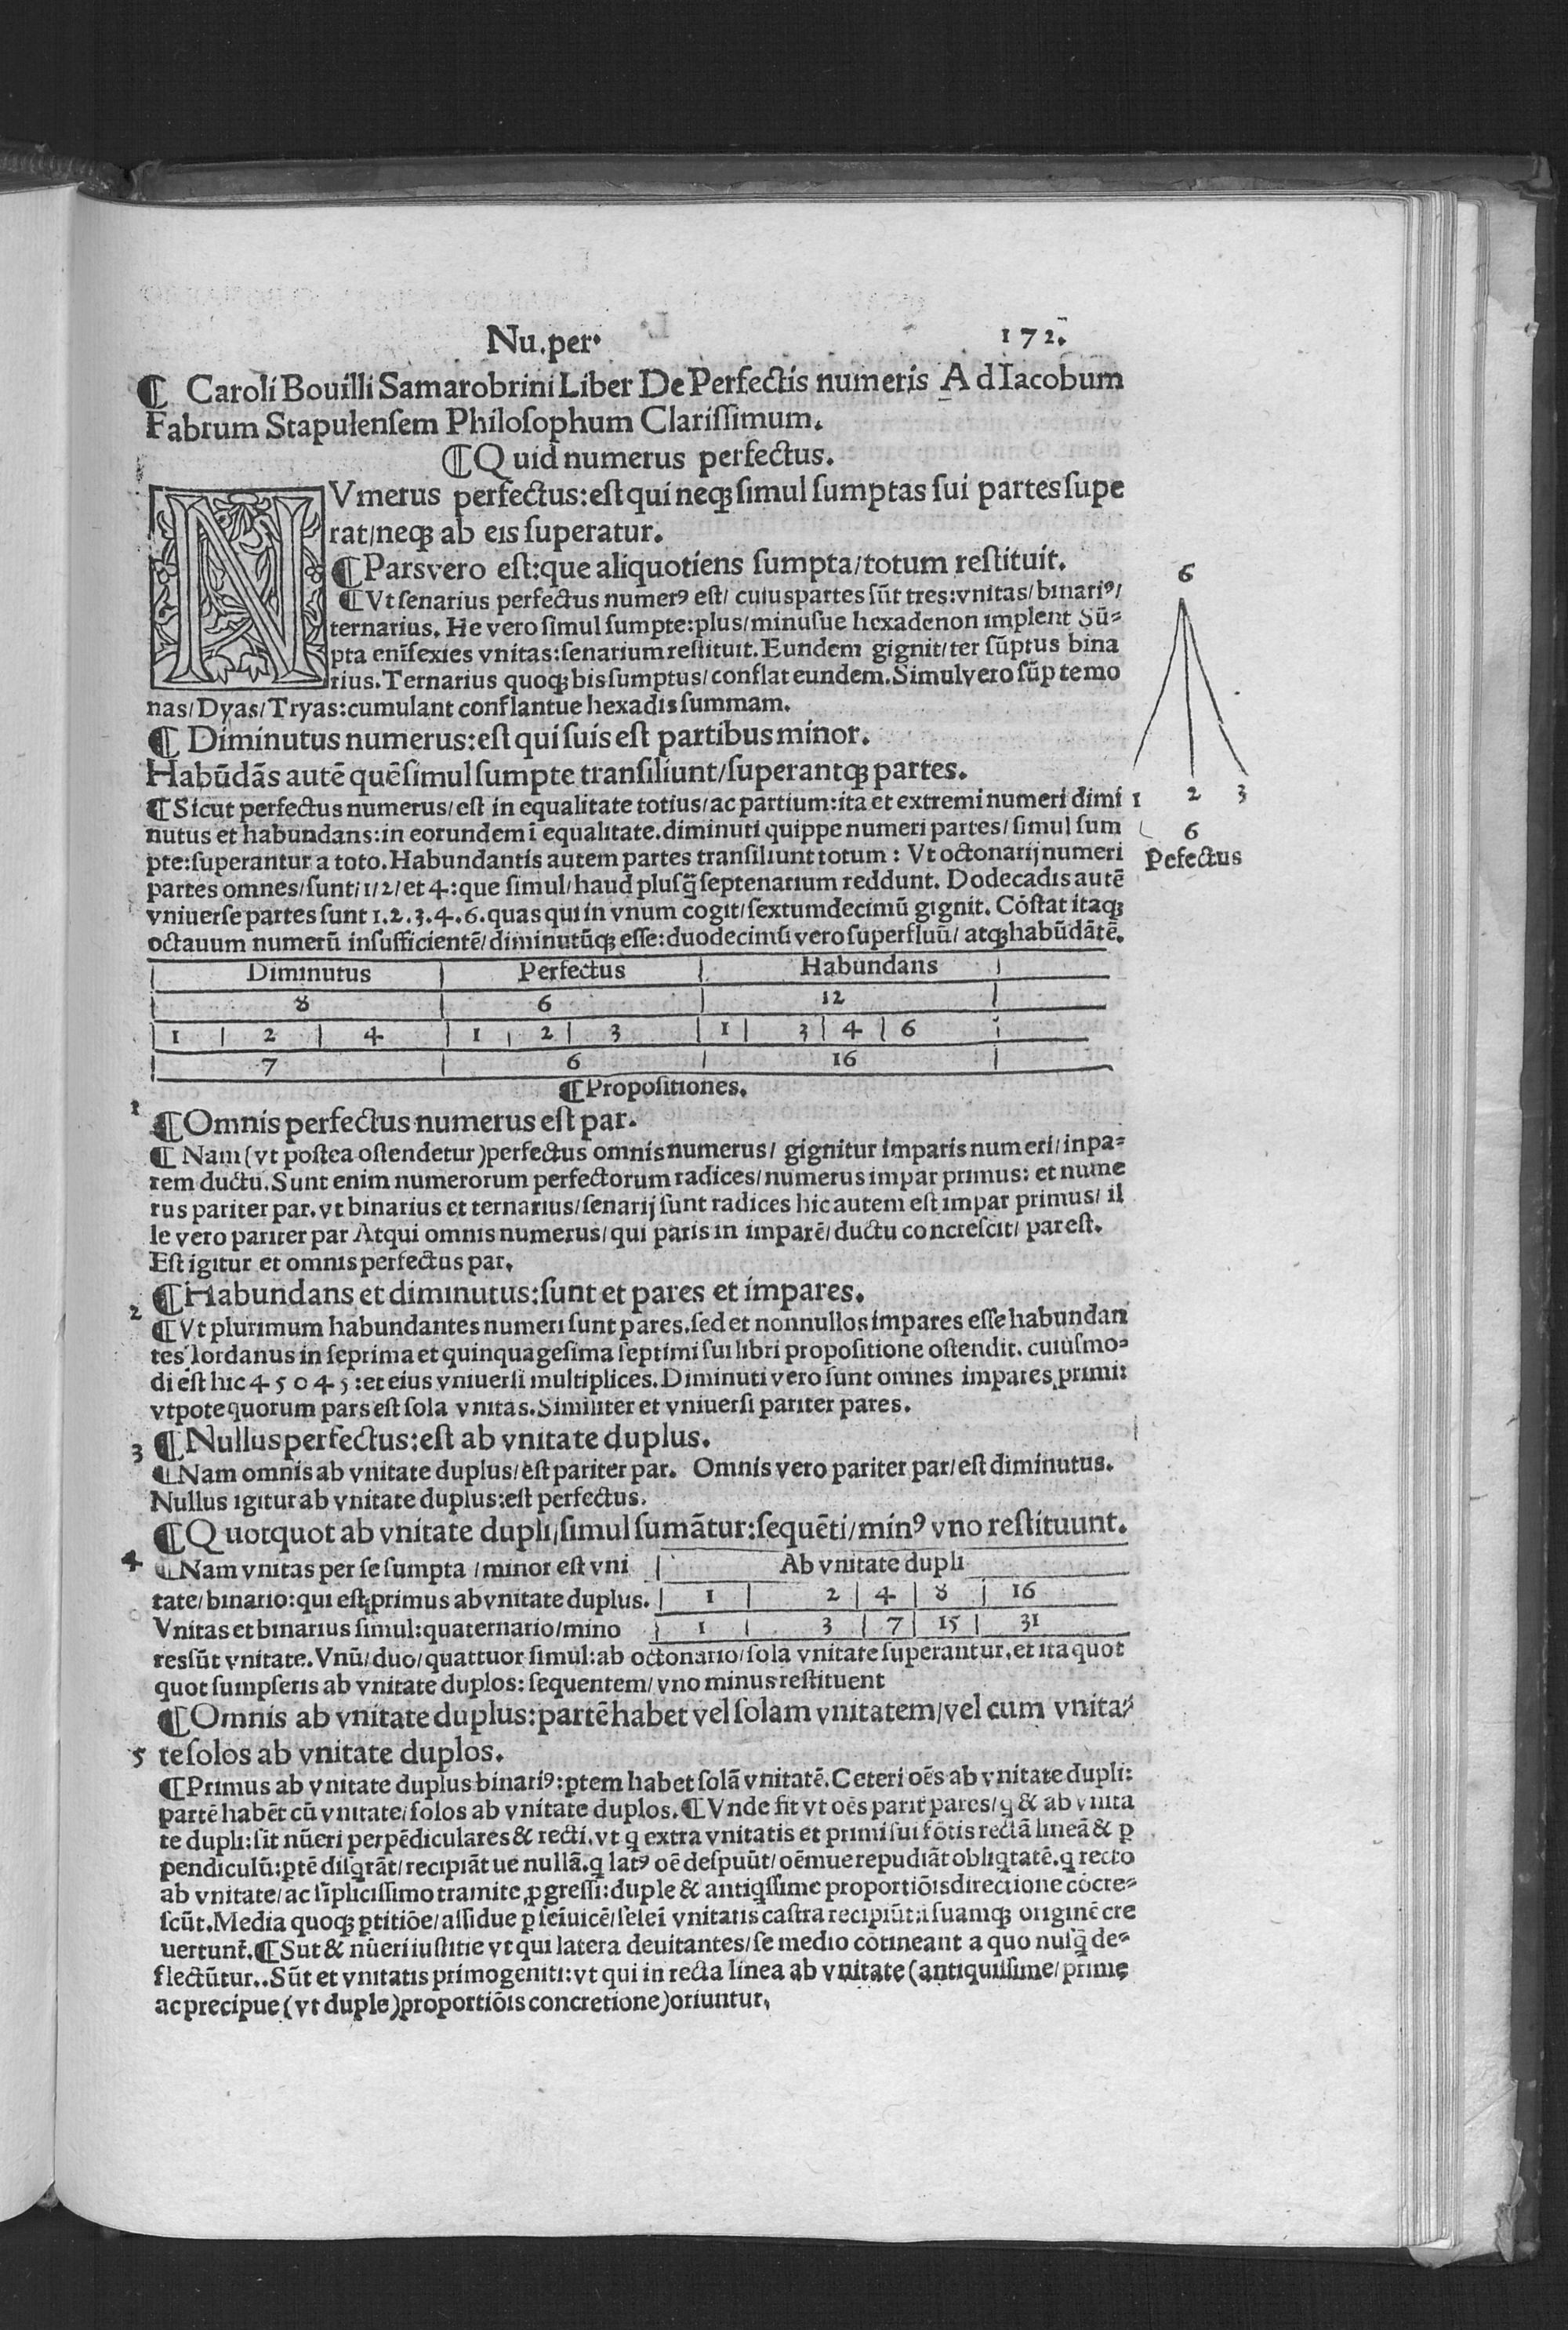 Nu.per. 172.
¶ Caroli Bouilli Samarobrini Liber De Perfectis numeris Ad Iacobum
Fabrum Stapulensem Philosophum Clarissimum.
¶Quid numerus perfectus.
NVmerus perfectus:est qui neqꝫ simul sumptas sui partes supe
rat/neqꝫ ab eis superatur.
¶Pars vero est:que aliquotiens sumpta/totum restituit.
¶Vt senarius perfectus numerꝰ est/ cuius partes sūt tres:vnitas/binariꝰ/
ternarius. He vero simul sumpte:plus/minusue hexade non implent Sū-
pta enīsexies vnitas:senarium restituit. Eundem gignit/ter sūptus bina
rius. Ternarius quoqꝫ bis sumptus/conflat eundem. Simul vero sūp te mo
nas/Dyas/Tryas:cumulant conflantue hexadis summam.
¶ Diminutus numerus:est qui suis est partibus minor.
Habūdās autē quē simul sumpte transiliunt/superantqꝫ partes.
¶Sicut perfectus numerus/est in equalitate totius/ac partium:ita et extremi numeri dimi
nutus et habundans:in eorundem ī equalitate.diminuti quippe numeri partes/simul sum
pte:superantur a toto. Habundantis autem partes transiliunt totum: Vt octonarij numeri
partes omnes/sunt/1/2/et 4:que simul/haud plusq̄ septenarium reddunt. Dodecadis autē
vniuerse partes sunt 1.2.3.4.6.quas qui in vnum cogit/sextumdecimū gignit. Cōstat itaqꝫ
octauum numerū insufficientē/diminutūqꝫ esse:duodecimū vero superfluū/atqꝫ habūdātē.
6
1 2 3
6
Pefectus
Diminutus | Perfectus | Habundans
8 | 6 | 12
1 | 2 | 4 | 1 | 2 | 3 | 1 | 3 | 4 | 6
7 | 6 | 16
¶Propositiones.
1 ¶Omnis perfectus numerus est par.
¶ Nam (vt postea ostendetur)perfectus omnis numerus/ gignitur imparis numeri/in pa-
rem ductu. Sunt enim numerorum perfectorum radices/numerus impar primus: et nume
rus pariter par. vt binarius et ternarius/senarij sunt radices hic autem est impar primus/il
le vero pariter par Atqui omnis numerus/qui paris in imparē/ductu concrescit/par est.
Est igitur et omnis perfectus par.
2 ¶Habundans et diminutus:sunt et pares et impares.
¶Vt plurimum habundantes numeri sunt pares.sed et nonnullos impares esse habundan
tes Iordanus in seprima et quinquagesima septimi sui libri propositione ostendit. cuiusmo-
di est hic 45045:et eius vniuersi multiplices. Diminuti vero sunt omnes impares primi:
vtpote quorum pars est sola vnitas. Similiter et vniuersi pariter pares.
3 ¶Nullus perfectus:est ab vnitate duplus.
¶Nam omnis ab vnitate duplus/est pariter par. Omnis vero pariter par/est diminutus.
Nullus igitur ab vnitate duplus:est perfectus.
¶Quotquot ab vnitate dupli/simul sumātur:sequēti/minꝰ vno restituunt.
4 ¶Nam vnitas per se sumpta /minor est vni
tate/binario:qui est primus ab vnitate duplus.
Vnitas et binarius simul:quaternario/mino
Ab vnitate dupli
1 | 2 | 4 | 8 | 16
1 | 3 | 7 | 15 | 31
res sūt vnitate. Vnū/duo/quattuor simul:ab octonario/sola vnitate superantur.et ita quot
quot sumpseris ab vnitate duplos: sequentem/vno minus restituent
¶Omnis ab vnitate duplus:partē habet vel solam vnitatem/vel cum vnita-
5 te solos ab vnitate duplos.
¶Primus ab vnitate duplus binariꝰ:ꝑtem habet solā vnitatē. Ceteri oēs ab vnitate dupli:
partē habēt cū vnitate/solos ab vnitate duplos. ¶Vnde fit vt oēs parit pares/q & ab vnita
te dupli:sīt nūeri perpēdiculares & recti. vt q extra vnitatis et primi sui fōtis rectā lineā & ꝑ
pendiculū:ꝑtē disq̄rāt/recipiāt ue nullā.q latꝰ oē despuūt/oēmue repudiāt obliqtatē.q recto
ab vnitate/ac sīplicissimo tramite ꝓgressi:duple & antiqssime proportiōis directione cōcre-
scūt. Media quoqꝫ ꝑtitiōe/assidue ꝑ seīuicē/seleī vnitatis castra recipiūt:ī suamqꝫ originē cre
uertunt. ¶Sūt & nūeri iustitie vt qui latera deuitantes/se medio cōtineant a quo nusq̄ de-
flectūtur..Sūt et vnitatis primogeniti:vt qui in recta linea ab vnitate (antiquissime/prime
ac precipue (vt duple)proportiōis concretione)oriuntur,